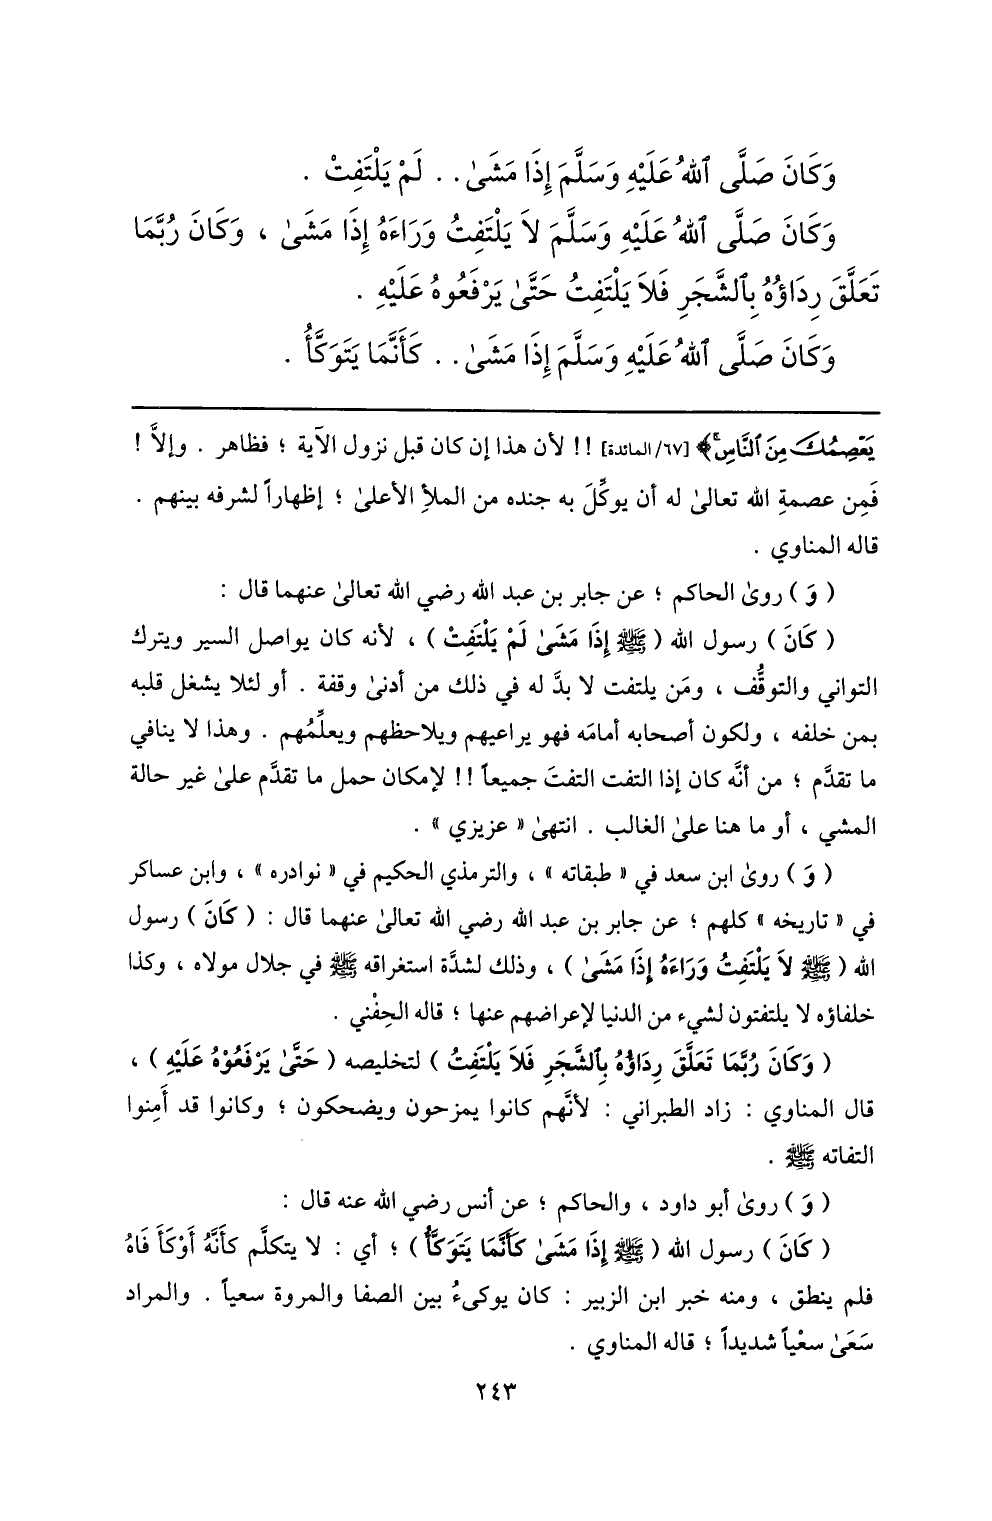 وَكَانَ صَلَّى ٱللهُ عَلَيْهِ وَسَلَّمَ إِذَا مَشَىٰ . . لَمْ يَلْتَفِتْ .
وَكَانَ صَلَّى ٱللهُ عَلَيْهِ وَسَلَّمَ لاَ يَلْتَفِتُ وَرَاءَهُ إِذَا مَشَىٰ ، وَكَانَ رُبَّمَا
تَعَلَّقَ رِدَاؤُهُ بِٱلشَّجَرِ فَلاَ يَلْتَفِتُ حَتَّىٰ يَرْفَعُوهُ عَلَيْهِ .
وَكَانَ صَلَّى ٱللهُ عَلَيْهِ وَسَلَّمَ إِذَا مَشَىٰ . . كَأَنَّمَا يَتَوَكَّأُ .
يَعْصِمُكَ مِنَ ٱلنَّاسِ﴾ [٦٧/المائدة] !! لأن هذا إن كان قبل نزول الآية ؛ فظاهر . وإلاَّ !
فَمِن عصمةِ الله تعالىٰ له أن يوكِّلَ به جنده من الملأِ الأعلىٰ ؛ إظهاراً لشرفه بينهم .
قاله المناوي .
( وَ ) روىٰ الحاكم ؛ عن جابر بن عبد الله رضي الله تعالىٰ عنهما قال :
( كَانَ ) رسول الله ( ﷺ إِذَا مَشَىٰ لَمْ يَلْتَفِتْ ) ، لأنه كان يواصل السير ويترك
التواني والتوقُّف ، ومَن يلتفت لا بدَّ له في ذلك من أدنىٰ وقفة . أو لئلا يشغل قلبه
بمن خلفه ، ولكون أصحابه أمامَه فهو يراعيهم ويلاحظهم ويعلِّمُهم . وهذا لا ينافي
ما تقدَّم ؛ من أنَّه كان إذا التفت التفتَ جميعاً !! لإمكان حمل ما تقدَّم علىٰ غير حالة
المشي ، أو ما هنا علىٰ الغالب . انتهىٰ « عزيزي » .
( وَ ) روىٰ ابن سعد في « طبقاته » ، والترمذي الحكيم في « نوادره » ، وابن عساكر
في « تاريخه » كلهم ؛ عن جابر بن عبد الله رضي الله تعالىٰ عنهما قال : ( كَانَ ) رسول
الله ( ﷺ لاَ يَلْتَفِتُ وَرَاءَهُ إِذَا مَشَىٰ ) ، وذلك لشدَّة استغراقه ﷺ في جلال مولاه ، وكذا
خلفاؤه لا يلتفتون لشيء من الدنيا لإعراضهم عنها ؛ قاله الحِفْني .
( وَكَانَ رُبَّمَا تَعَلَّقَ رِدَاؤُهُ بِٱلشَّجَرِ فَلاَ يَلْتَفِتُ ) لتخليصه ( حَتَّىٰ يَرْفَعُوْهُ عَلَيْهِ ) ،
قال المناوي : زاد الطبراني : لأنَّهم كانوا يمزحون ويضحكون ؛ وكانوا قد أَمِنوا
التفاته ﷺ .
( وَ ) روىٰ أبو داود ، والحاكم ؛ عن أنس رضي الله عنه قال :
( كَانَ ) رسول الله ( ﷺ إِذَا مَشَىٰ كَأَنَّمَا يَتَوَكَّأُ ) ؛ أي : لا يتكلَّم كأنَّهُ أَوْكَأَ فَاهُ
فلم ينطق ، ومنه خبر ابن الزبير : كان يوكىءُ بين الصفا والمروة سعياً . والمراد
سَعَىٰ سعْياً شديداً ؛ قاله المناوي .
٢٤٣